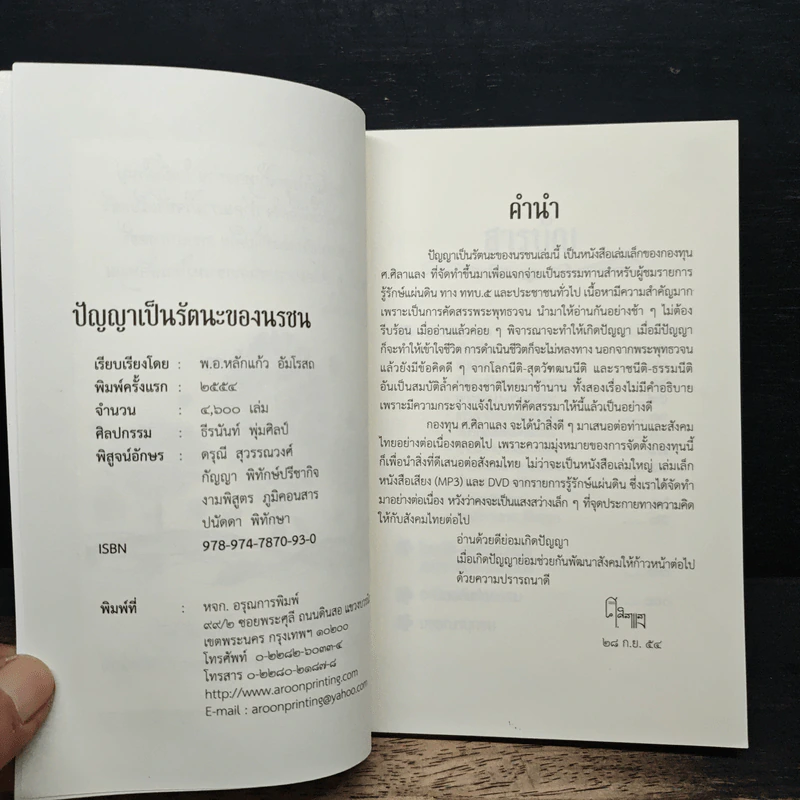 ปัญญาเป็นรัตนะของนรชน
เรียบเรียงโดย : พ.อ.หลักแก้ว อัมโรสถ
พิมพ์ครั้งแรก : ๒๕๕๔
จำนวน : ๔,๖๐๐ เล่ม
ศิลปกรรม : ธีรนันท์ พุ่มศิลป์
พิสูจน์อักษร : ดรุณี สุวรรณวงศ์
กัญญา พิทักษ์ปรีชากิจ
งามพิสูตร ภูมิคอนสาร
ปนัดดา พิทักษา
ISBN 978-974-7870-93-0
พิมพ์ที่ : หจก. อรุณการพิมพ์
๙๙/๒ ซอยพระศุลี ถนนดินสอ
เขตพระนคร กรุงเทพฯ ๑๐๒๐๐
โทรศัพท์ ๐-๒๒๘๒-๖๐๓๓-๔
โทรสาร ๐-๒๒๘๐-๒๑๘๗-๘
http://www.aroonprinting.com
E-mail : aroonprinting@yahoo.com
คำนำ
ปัญญาเป็นรัตนะของนรชนเล่มนี้ เป็นหนังสือเล่มเล็กของกองทุน
ศ.ศิลาแลง ที่จัดทำขึ้นมาเพื่อแจกจ่ายเป็นธรรมทานสำหรับผู้ชมรายการ
รู้รักษ์แผ่นดิน ทาง ททบ.๕ และประชาชนทั่วไป เนื้อหามีความสำคัญมาก
เพราะเป็นการคัดสรรพระพุทธวจน นำมาให้อ่านกันอย่างช้า ๆ ไม่ต้อง
รีบร้อน เมื่ออ่านแล้วค่อย ๆ พิจารณาจะทำให้เกิดปัญญา เมื่อมีปัญญา
ก็จะทำให้เข้าใจชีวิต การดำเนินชีวิตก็จะไม่หลงทาง นอกจากพระพุทธวจน
แล้วยังมีข้อคิดดี ๆ จากโลกนีติ-สุตวัฑฒนนีติ และราชนีติ-ธรรมนีติ
อันเป็นสมบัติล้ำค่าของชาติไทยมาช้านาน ทั้งสองเรื่องไม่มีคำอธิบาย
เพราะมีความกระจ่างแจ้งในบทที่คัดสรรมาให้นี้แล้วเป็นอย่างดี
กองทุน ศ.ศิลาแลง จะได้นำสิ่งดี ๆ มาเสนอต่อท่านและสังคม
ไทยอย่างต่อเนื่องตลอดไป เพราะความมุ่งหมายของการจัดตั้งกองทุนนี้
ก็เพื่อนำสิ่งที่ดีเสนอต่อสังคมไทย ไม่ว่าจะเป็นหนังสือเล่มใหญ่ เล่มเล็ก
หนังสือเสียง (MP3) และ DVD จากรายการรู้รักษ์แผ่นดิน ซึ่งเราได้จัดทำ
มาอย่างต่อเนื่อง หวังว่าคงจะเป็นแสงสว่างเล็ก ๆ ที่จุดประกายทางความคิด
ให้กับสังคมไทยต่อไป
อ่านด้วยดีย่อมเกิดปัญญา
เมื่อเกิดปัญญาย่อมช่วยกันพัฒนาสังคมให้ก้าวหน้าต่อไป
ด้วยความปรารถนาดี
๒๘ ก.ย. ๕๔